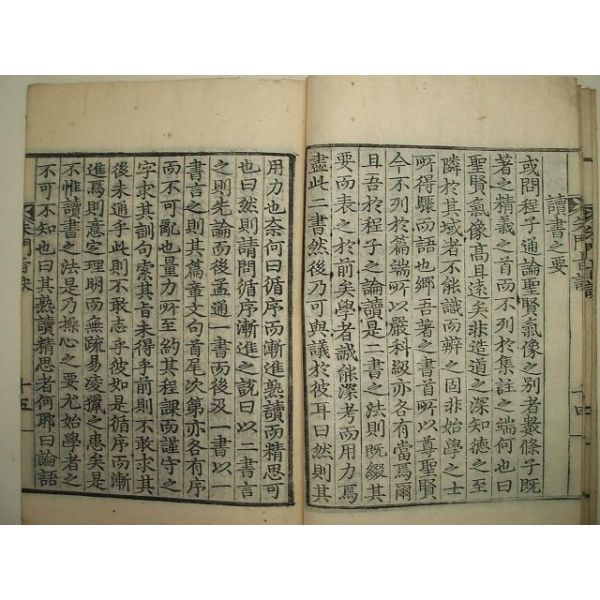 讀書之要
或問程子通論聖賢氣像之別者數條子既
著之精義之首而不列於集註之端何也曰
聖賢氣像高且遠矣非造道之深知德之至
隣於其域者不能識而辨之固非始學之士
所得驟而語也鄉吾著之書首所以尊聖賢
今不列於篇端所以嚴科級亦各有當焉爾
且吾於程子之論讀是二書之法則既綴其
要而表之於前矣學者誠能深考而用力焉
盡此二書然後乃可與議於彼耳曰然則其
用力也奈何曰循序而漸進熟讀而精思可
也曰然則請問循序漸進之說曰以二書言
之則先論而後孟通一書而後及一書以一
書言之則其篇章文句首尾次第亦各有序
而不可亂也量力所至約其程課而謹守之
字求其訓句索其旨未得乎前則不敢求其
後未通乎此則不敢志乎彼如是循序而漸
進焉則意定理明而無疏易凌獵之患矣是
不惟讀書之法是乃操心之要尤始學者之
不可不知也曰其熟讀精思者何耶曰論語
朱門旨訣
十五